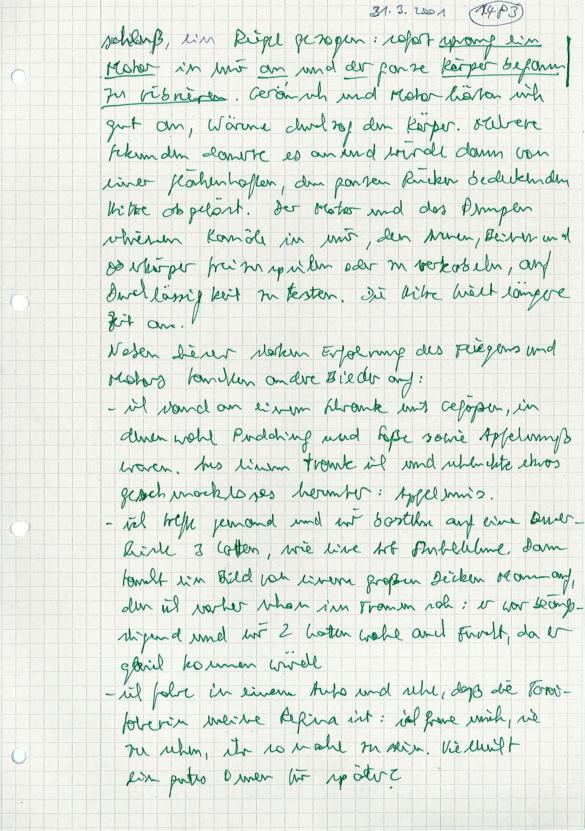 31.3.2001 14P3
schloß, ein Riegel gezogen: sofort sprang ein
Motor in mir an und der ganze Körper begann
zu vibrieren. Geräusch und Motor hörten sich
gut an, Wärme durchzog den Körper. Mehrere
Sekunden dauerte es an und wurde dann von
einer flächenhaften, den ganzen Rücken bedeckenden
Hitze abgelöst. Der Motor und das Pumpen
schienen Kanäle in mir, den Armen, und
Oberkörper freizuspülen oder zu verkabeln, auf
Durchlässigkeit zu testen. Die Hitze hielt längere
Zeit an.
Neben dieser starken Erfahrung des Fliegens und
Motors tauchten andere Bilder auf:
- ich stand an einem Schrank mit Gefäßen, in
denen wohl Pudding und Soße sowie Apfelmuß
waren. Aus einem trank ich und schluckte etwas
geschmackloses herunter: Apfelmus.
- ich treffe jemand und wir basteln auf eine
3 Latten, wie eine Art Stuhllehne. Dann
taucht ein Bild von einem großen dicken Mann auf,
den ich vorher schon im Traum sah: er war beäng-
stigend und wir 2 hatten wohl auch Furcht, da er
gleich kommen würde
- ich fahre in einem Auto und sehe, daß die
meine Regina ist: ich freue mich, sie
zu sehen, ihr so nahe zu sein. Vielleicht
ein gutes Omen für später?